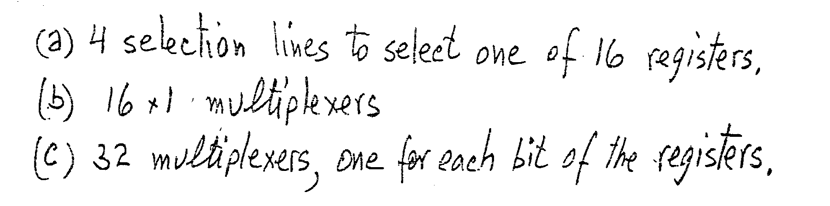 (a) 4 selection lines to select one of 16 registers.
(b) 16 x 1 multiplexers
(c) 32 multiplexers, one for each bit of the registers.